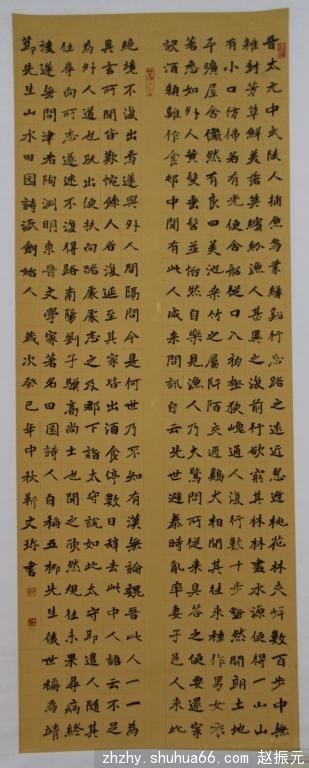 晋太元中武陵人捕魚為業緣谿行忘路之遠近忽逢桃花林夹岸數百步中無
雜封芳草鮮美落英繽紛漁人甚異之復前行欲窮其林林盡水源便得一山山
有小口仿佛若有光便舍船從口入初極狹纔通人復行數十步豁然開朗土地
平曠屋舍儼然有良田美池桑竹之屬阡陌交通鷄犬相聞其往来種作男女衣
著悉如外人黄髮垂髫並怡然自樂見漁人乃大驚問所從来具答之便要還家
設酒雞作食邨中聞有此人咸来問訊自云先世避秦時亂率妻子邑人来此
絶境不復出焉遂與外人間隔問今是何世乃不知有漢無論魏晋此人一一為
具言所聞皆歎惋餘人各復延至其家皆出酒食停數日辞去此中人語云不足
為外人道也既出便扶向路處處志之及郡下詣太守說如此太守即遣人随其
往尋向所志遂迷不復得路南陽劉子驥高尚士也聞之欣然規往未果尋病終
後遂無問津者陶淵明東晋文學家名田園詩人自稱五柳先生後世稱為靖
節先生山水田園詩派創始人 歲次癸巳年中秋靳文弥書
zhzhy.shuhua66.com 赵振元